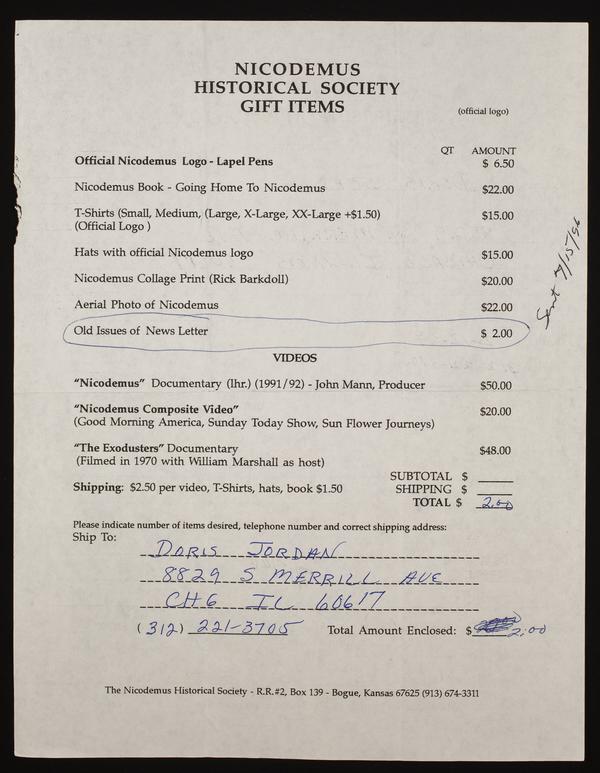 NICODEMUS
HISTORICAL SOCIETY
GIFT ITEMS
(official logo)
QT AMOUNT
Official Nicodemus Logo - Lapel Pens $ 6.50
Nicodemus Book - Going Home To Nicodemus $22.00
T-Shirts (Small, Medium, (Large, X-Large, XX-Large +$1.50) $15.00
(Official Logo )
Hats with official Nicodemus logo $15.00
Nicodemus Collage Print (Rick Barkdoll) $20.00
Aerial Photo of Nicodemus $22.00
Old Issues of News Letter $ 2.00
Sent 7/15/96
VIDEOS
"Nicodemus" Documentary (lhr.) (1991/92) - John Mann, Producer $50.00
"Nicodemus Composite Video" $20.00
(Good Morning America, Sunday Today Show, Sun Flower Journeys)
"The Exodusters" Documentary $48.00
(Filmed in 1970 with William Marshall as host)
SUBTOTAL $
Shipping: $2.50 per video, T-Shirts, hats, book $1.50 SHIPPING $
TOTAL $ 2.00
Please indicate number of items desired, telephone number and correct shipping address:
Ship To:
DORIS JORDAN
8829 S MERRILL AVE
CHG IL 60617
(312) 221-3705 Total Amount Enclosed: $ 2.00
The Nicodemus Historical Society - R.R.#2, Box 139 - Bogue, Kansas 67625 (913) 674-3311